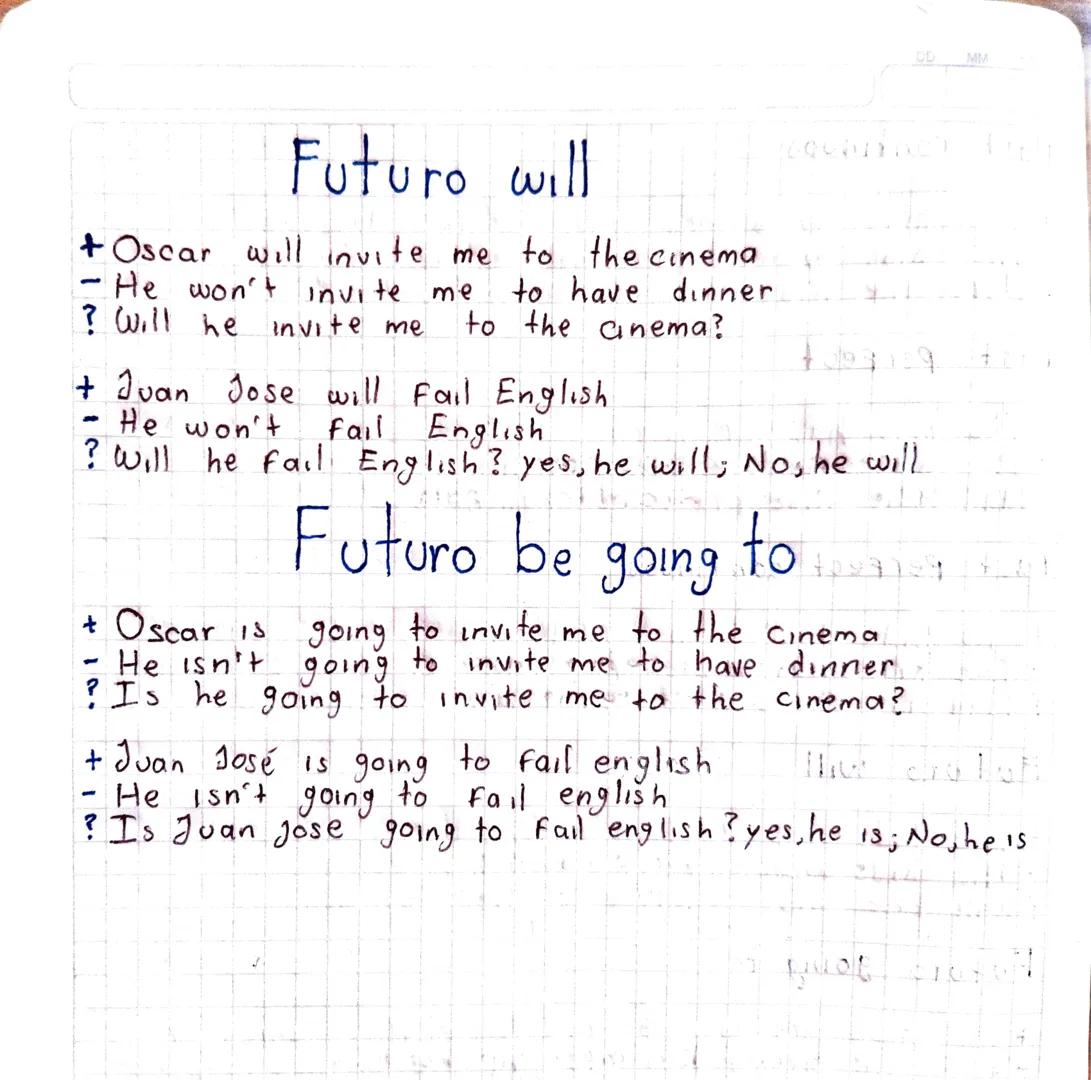 DD MM
Futuro will
+ Oscar will invite me to the cinema
- He won't invite me to have dinner
? Will he invite me to the cinema?
+ Juan Jose will Fail English
- He won't fail English
? Will he fail English? yes, he will; No, he will
Futuro be going to
+ Oscar is going to invite me to the cinema
- He isn't going to invite me to have dinner
? Is he going to invite me to the cinema?
+ Juan José is going to fail english
- He isn't going to Fail english
? Is Juan Jose going to Fail english? yes, he is; No, he is